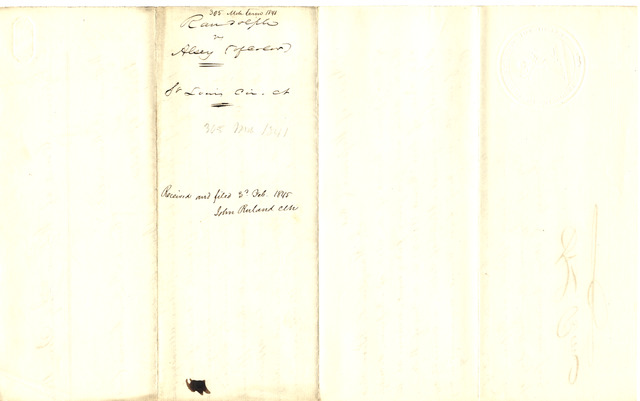 305 Mch term 1841
Randolph
vs
Alsey (of color)
St Louis Cir. Ct
305 Mch 1841
Received and filed 3d Feb. 1845
John Ruland Clk